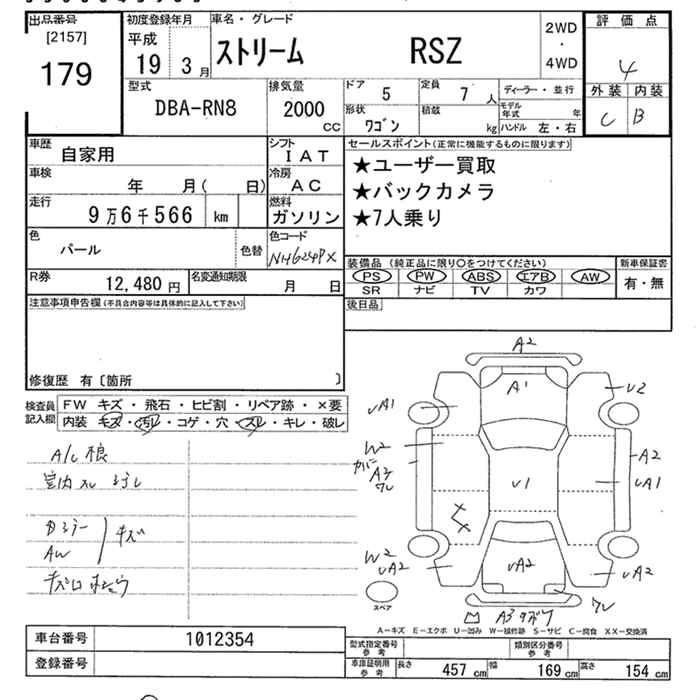 出品番号 初度登録年月 車名・グレード 評価点
[2157]
179
平成
19 3月
ストリーム RSZ
2WD
・
4WD
4
型式 排気量 ドア 定員 ディーラー・並行 外装 内装
DBA-RN8 2000 CC
5 7人
形状 積載 モデル年式 年
ワゴン kg ハンドル 左・右
C B
車歴 シフト セールスポイント(正常に機能するものに限ります)
自家用 IAT
★ユーザー買取
車検 年 月( 日) 冷房 AC
★バックカメラ
走行 燃料
9万6千566 km ガソリン
★7人乗り
色 色替 色コード
パール NH624PX
装備品(純正品に限り○をつけてください) 新車保証書
PS PW ABS エアB AW
SR ナビ TV カワ
有・無
R券 名変通知期限
12,480円 月 日
後日品
注意事項申告欄(不具合内容等は具体的に記入して下さい)
修復歴 有〔箇所 〕
検査員記入欄
FW キズ・飛石・ヒビ割・リペア跡・×要
内装 キズ・汚レ・コゲ・穴・スレ・キレ・破レ
A/C
室内スレ
AW
キズ
A2
A1
UA1
U2
W2
A3
U1
A2
UA1
W2
UA2
UA2
UA2
スペア
A3
A-キズ E-エクボ U-凹み W-補修跡 S-サビ C-腐食 XX-交換済
車台番号 1012354
登録番号
型式指定番号 参考 類別区分番号 参考
車庫証明用 参考 長さ 457 cm 幅 169 cm 高さ 154 cm